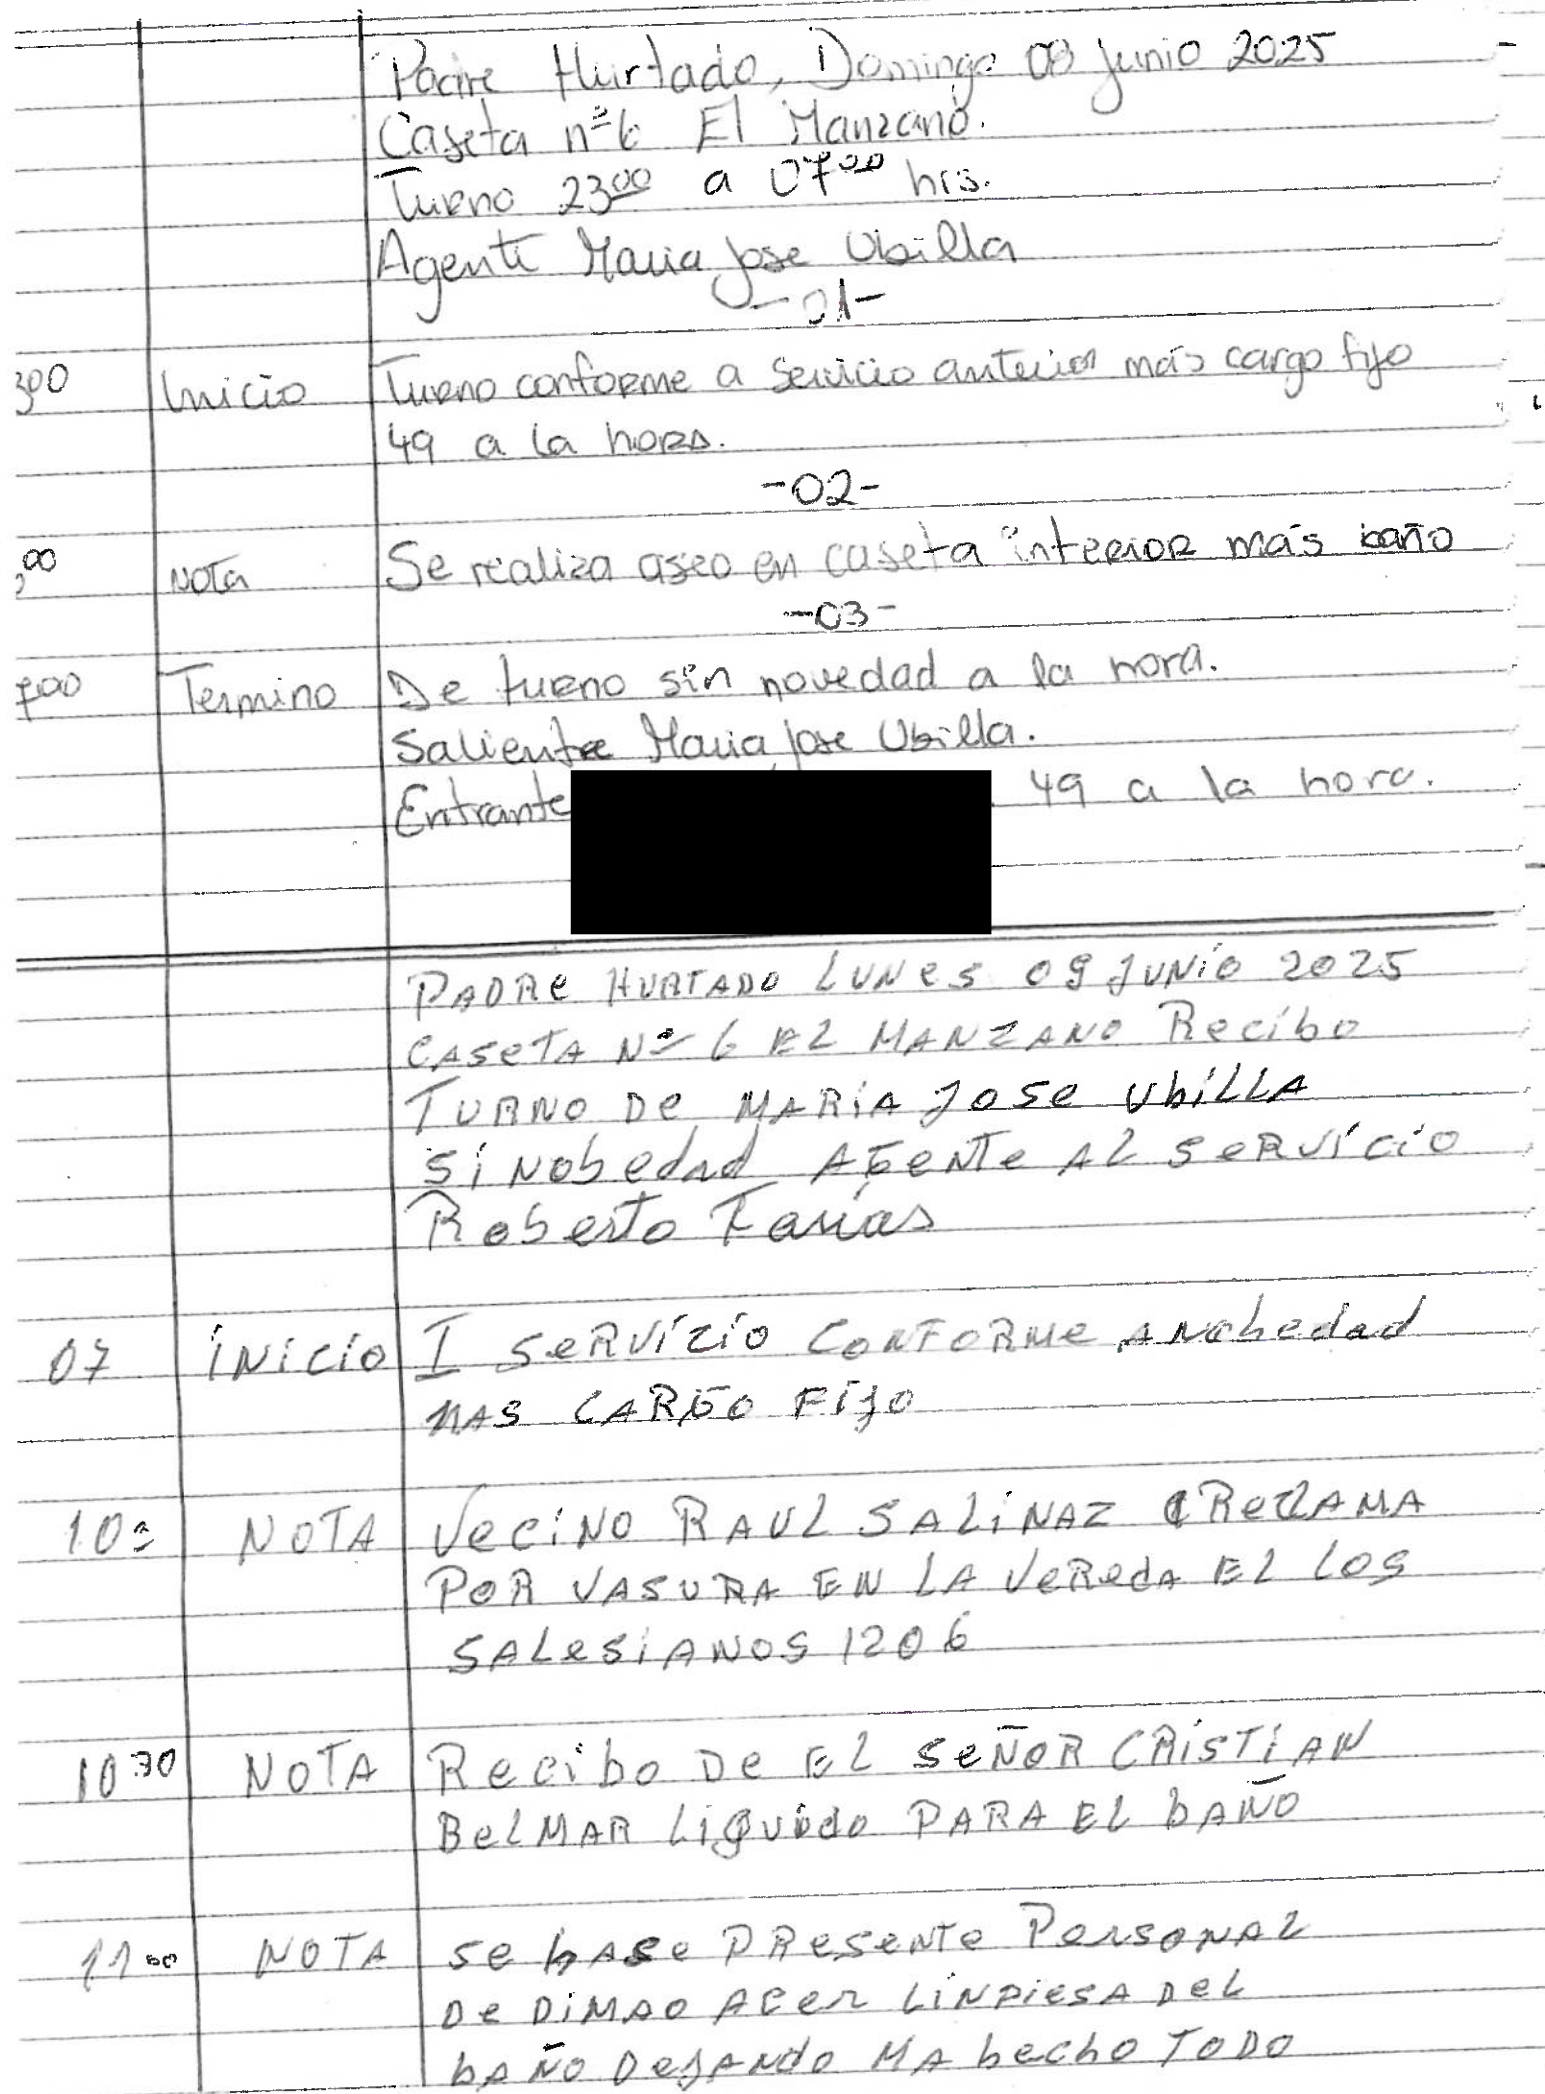 Padre Hurtado, Domingo 08 Junio 2025
Caseta nº6 El Manzano.
Turno 2300 a 0700 hrs.
Agente Maria Jose Ubilla
-01-
300 Inicio Turno conforme a servicio anterior más cargo fijo
49 a la hora.
-02-
00 Nota Se realiza aseo en caseta interior más baño
-03-
700 Termino De turno sin novedad a la hora.
Saliente Maria Jose Ubilla.
Entrante 49 a la hora.
PADRE HURTADO LUNES 09 JUNIO 2025
CASETA Nº 6 EL MANZANO Recibo
TURNO De MARIA JOSE UbiLLA
Si Nobedad AGENTe AL SeRViCiO
Roberto Farias
07 iNiCiO I SeRViZiO CONFORMe ANobedad
MAS CARGO FiJO
10 NOTA VeCiNO RAUL SALiNAZ ReCLAMA
POR VASURA EN LA VeRedA EL LOS
SALeSiANOS 1206
10 30 NOTA Recibo De EL SeÑOR CRiSTiAN
BeLMAR LiQUido PARA EL bAÑO
11 00 NOTA Se hASe PReSeNTe PeRSONAL
De DiMAO ACeR LiNPieSA DeL
bAÑO DeJANdo MA hecho TODO